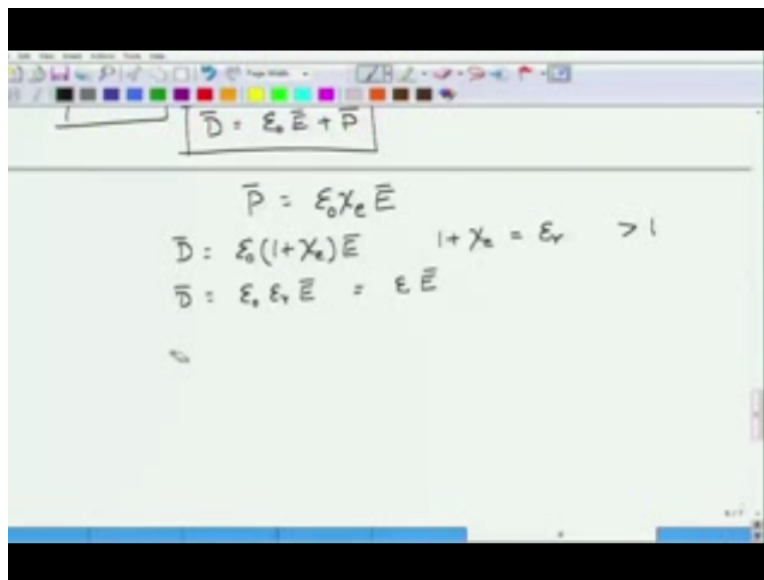 Page Width
D̄ = ε₀ Ē + P̄
P̄ = ε₀ χₑ Ē
D̄ = ε₀ (1 + χₑ) Ē 1 + χₑ = εᵣ > 1
D̄ = ε₀ εᵣ Ē = ε Ē